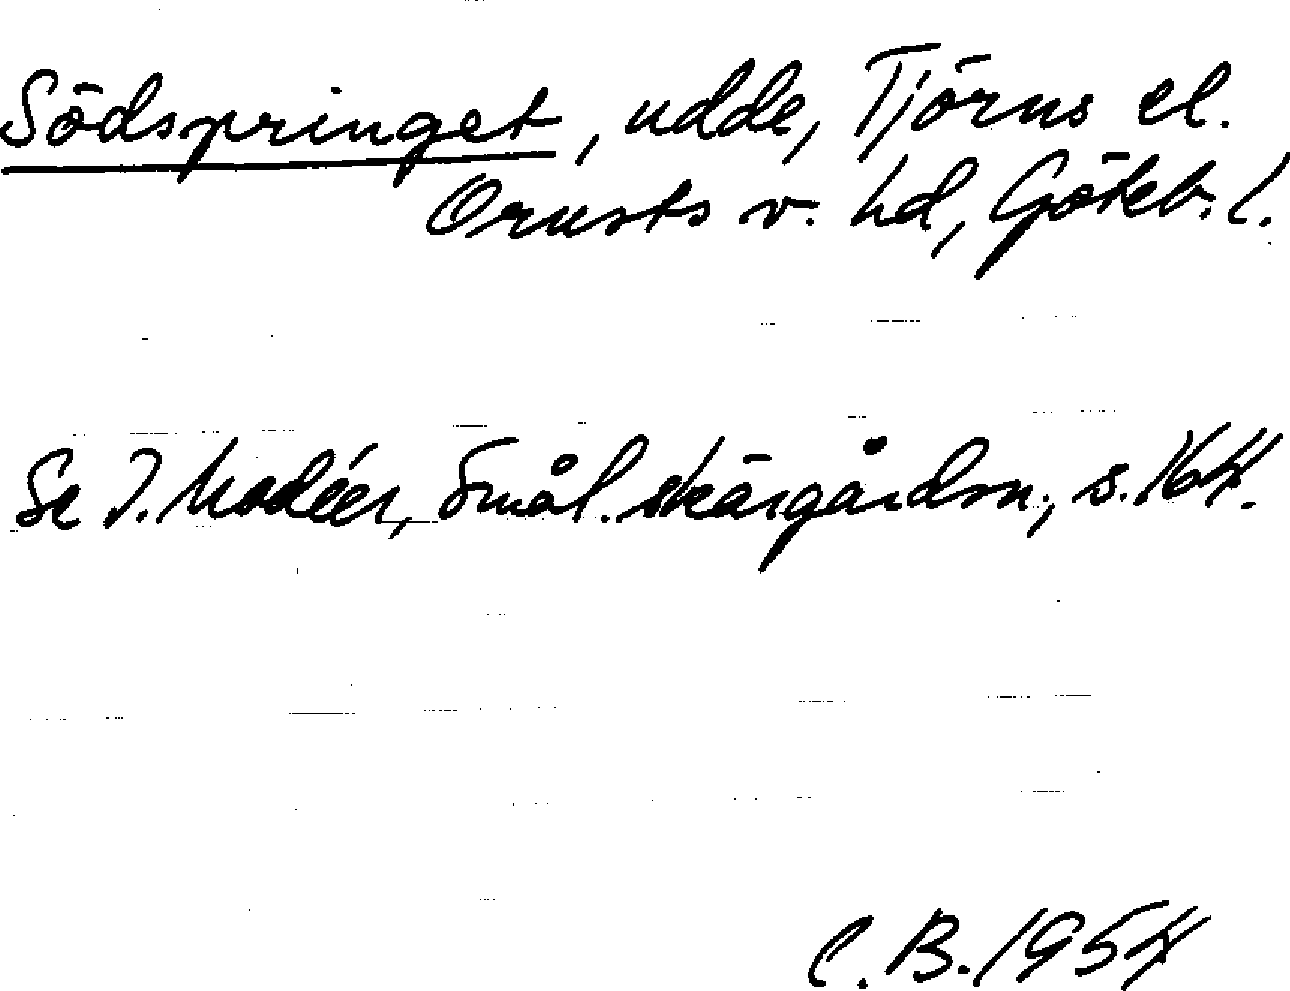 Södspringet, udde, Tjörns el.
Orusts v. hd, Göteb. l.
Se I. Modéer, Smål. skärgårdsn., s. 164.
C. B. 1954